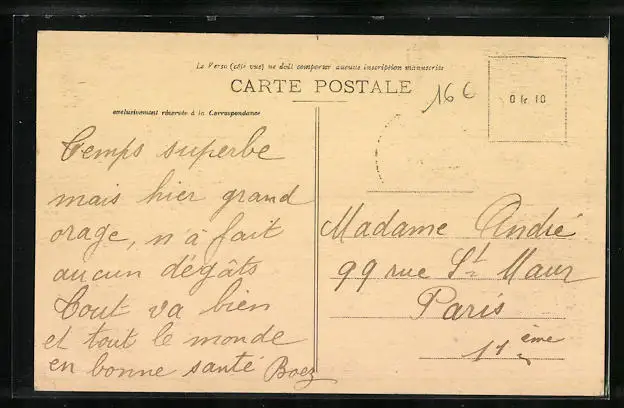 Le Verso (côté vue) ne doit comporter aucune inscription manuscrite
CARTE POSTALE
exclusivement réservée à la Correspondance
16 €
0 fr. 10
Temps superbe
mais hier grand
orage, n'a fait
aucun dégâts
Tout va bien
et tout le monde
en bonne santé
Madame André
99 rue St Maur
Paris
11 ème